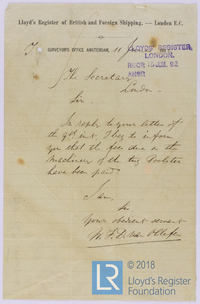 Lloyd's Register of British and Foreign Shipping. — London E.C.
SURVEYORS OFFICE AMSTERDAM, 11
LLOYD'S REGISTER,
LONDON.
RECD 13 JUL 92
ANSD
The Secretary
London.
Sir,
In reply to your letter of
the 9th inst. I beg to inform
you that the fees due on the
Machinery of the tug
have been paid.
I am,
Sir
Your obedient servant
© 2018
LR
Lloyd's Register
Foundation